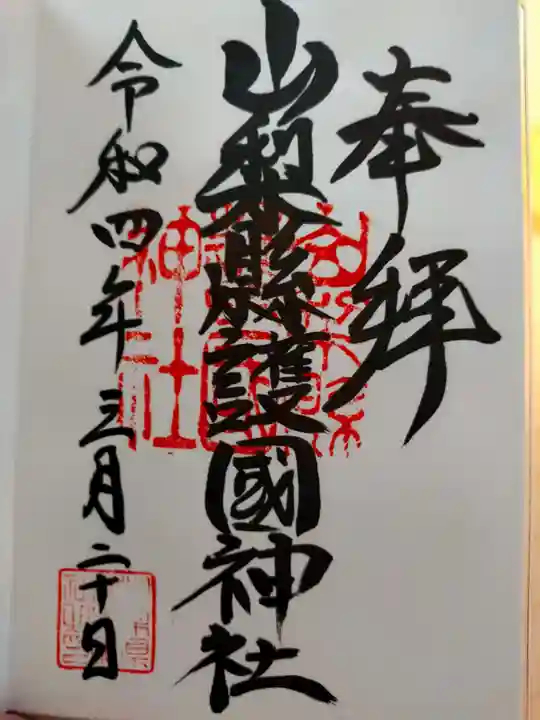 奉拝
山梨縣護國神社
令和四年三月二十日